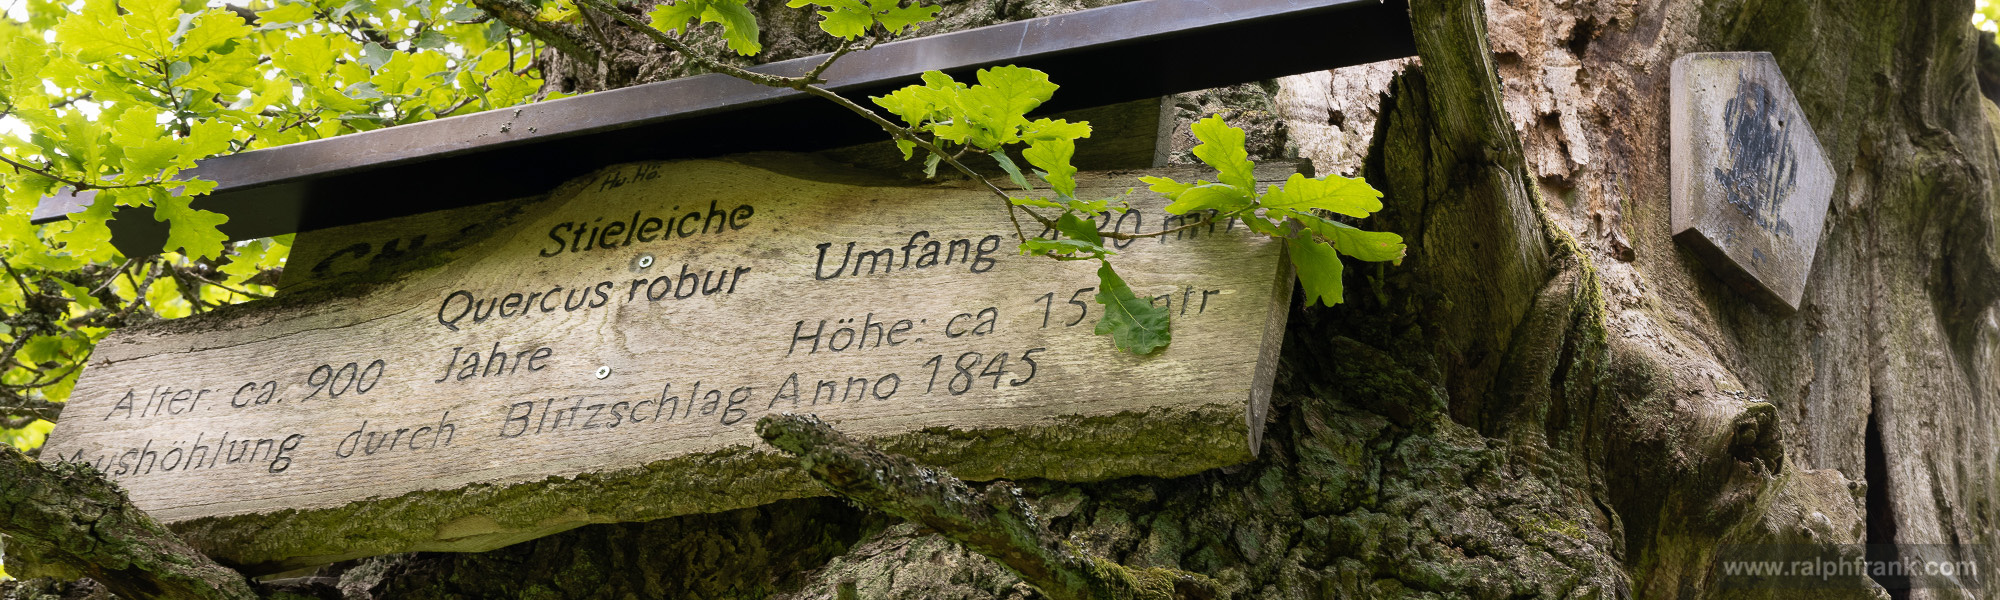 Hu.Hö.
Stieleiche
Quercus robur
Umfang 20
Alter: ca. 900 Jahre
Höhe: ca 15
Aushöhlung durch Blitzschlag Anno 1845
www.ralphfrank.com